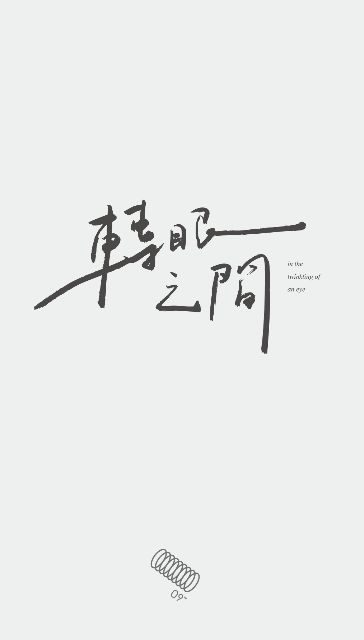 轉眼
之間
in the
twinkling of
an eye